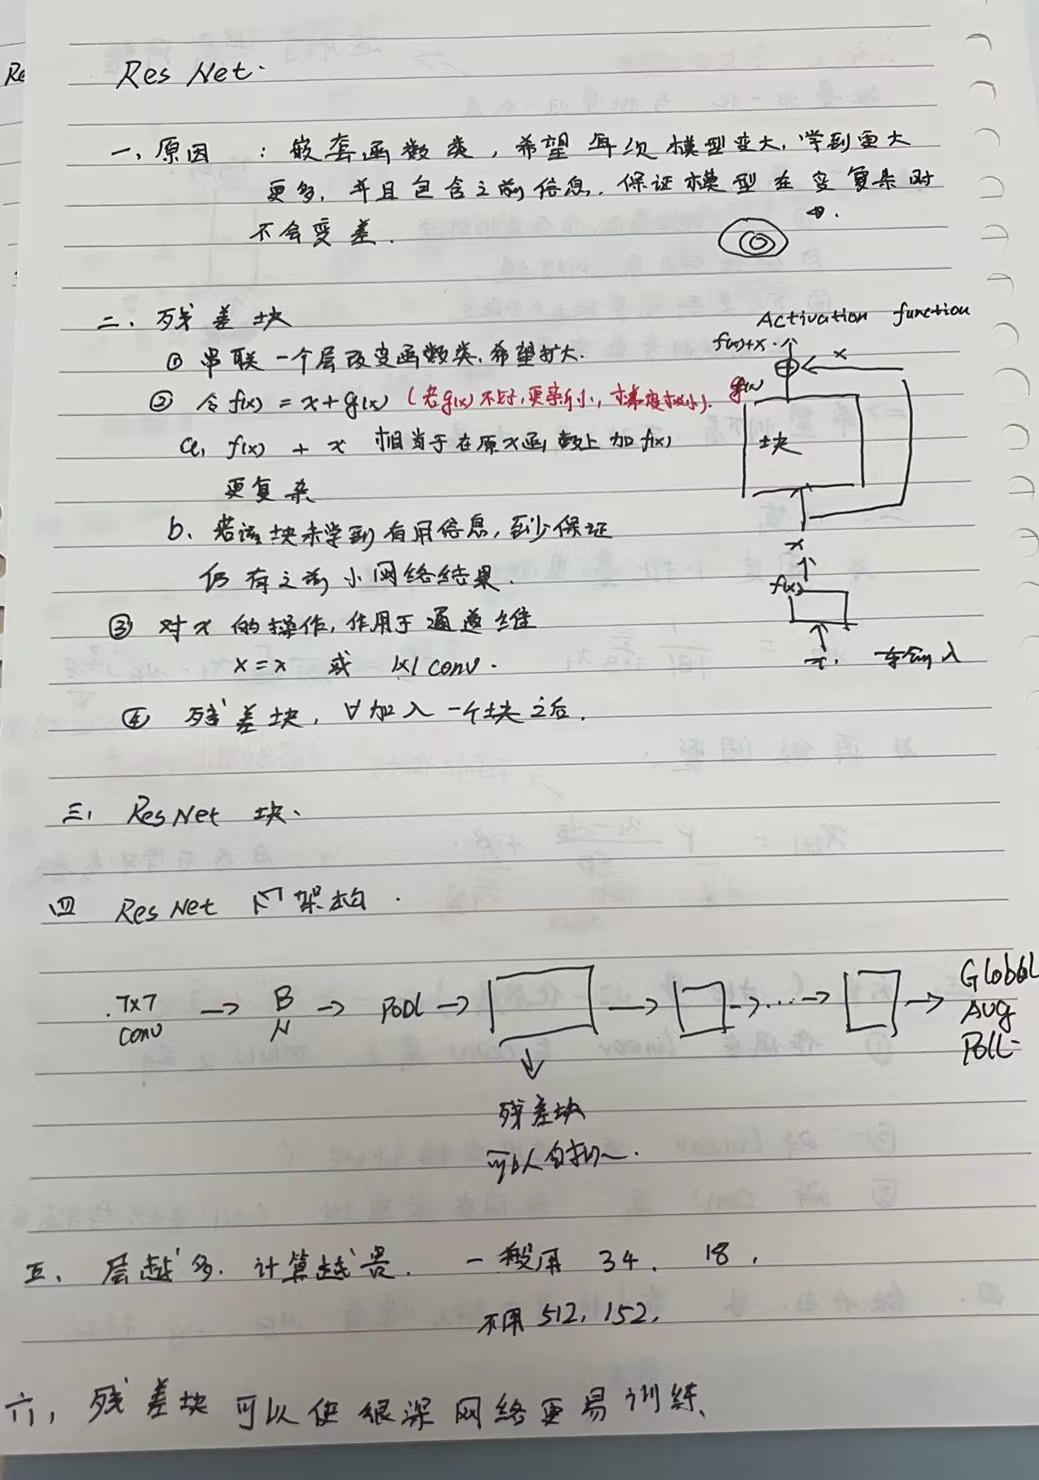 Res Net.
一、原因 : 嵌套函数类, 希望每次模型变大, 学到更大
更多, 并且包含之前信息. 保证模型在变复杂时
不会变差.
二、残差块
① 串联一个层改变函数类, 希望扩大.
② 令 f(x) = x + g(x) (若g(x)不好, 更新小, 梯度小).
a, f(x) + x 相当于在原x函数上加 f(x)
更复杂
b、若该块未学到有用信息, 至少保证
仍有之前小网络结果.
③ 对x的操作, 作用于通道维
x = x 或 1x1 conv.
④ 残差块, ∀加入一个块之后.
Activation function
f(x)+x.
x
g(x)
块
x
f(x)
x.
三、ResNet 块.
四 ResNet 架构.
7x7
conv
→ BN → Pool → → → ... → → Global
Avg
Poll
残差块
可以自加.
五、层越多. 计算越贵. 一般用 34、18,
不用 512, 152,
六, 残差块可以使很深网络更易训练、